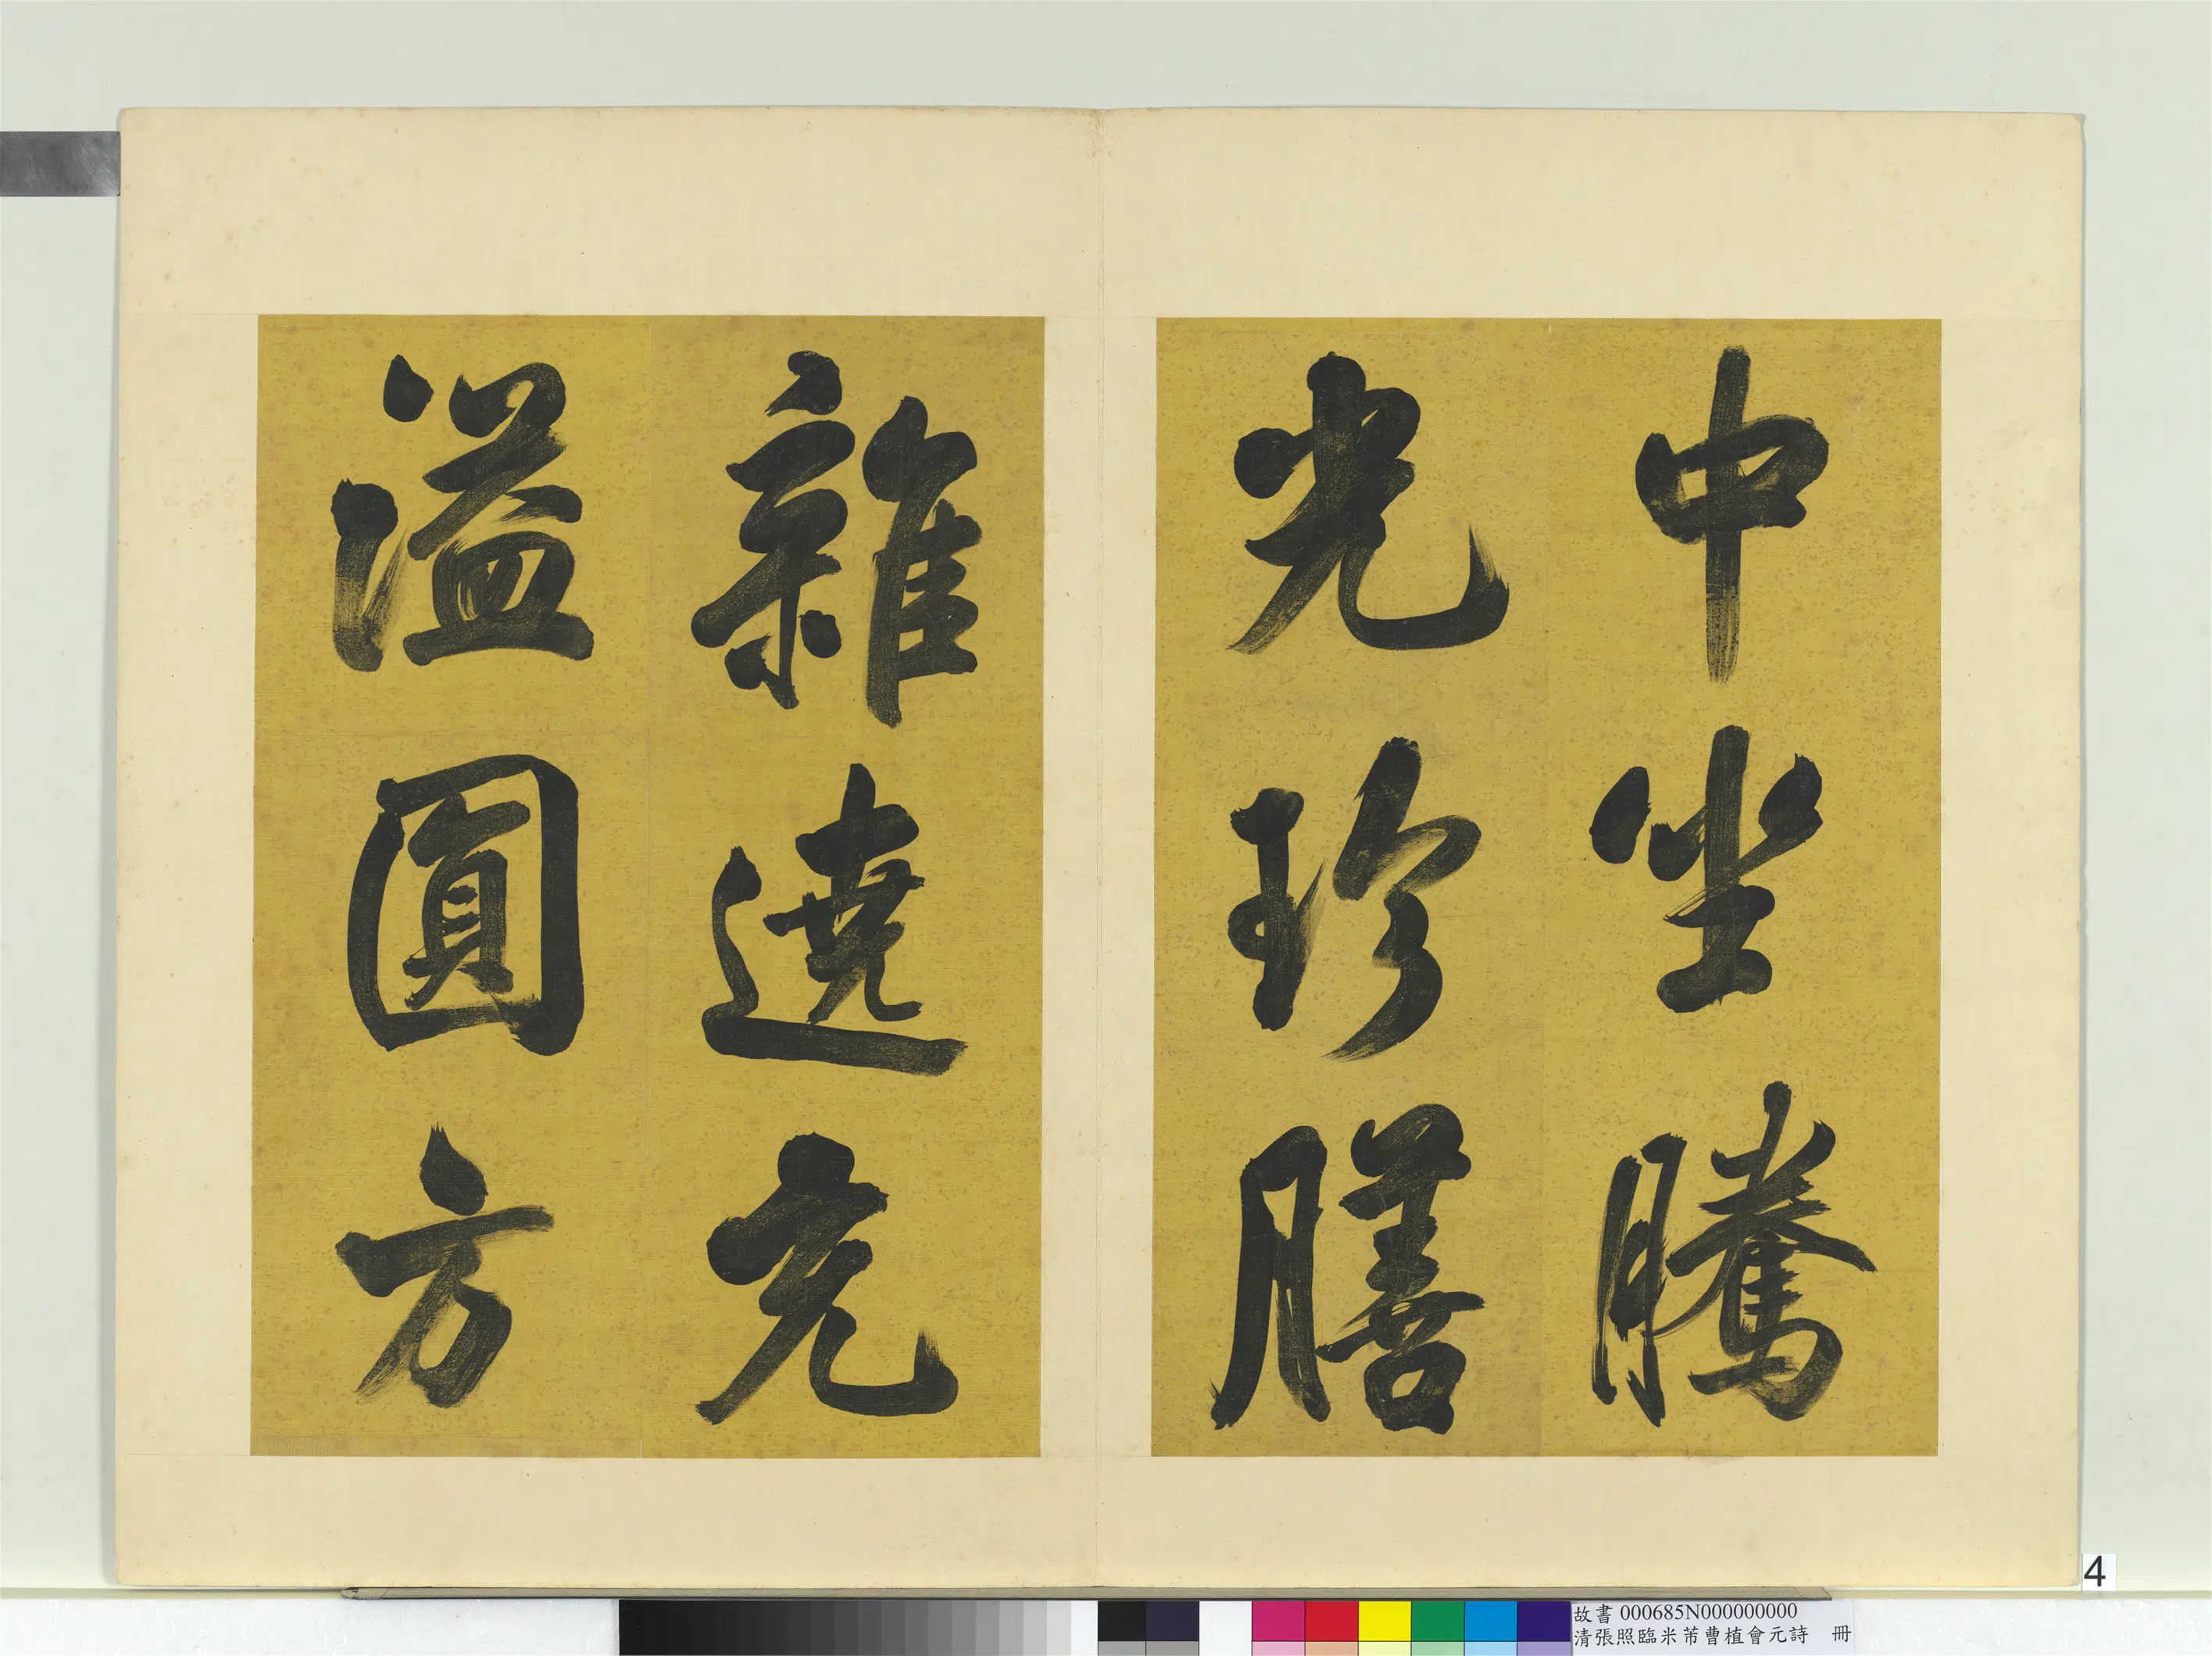 中坐騰
光珍膳
雜遶充
溢圓方
4
故書 000685N000000000
清張照臨米芾曹植會元詩 冊